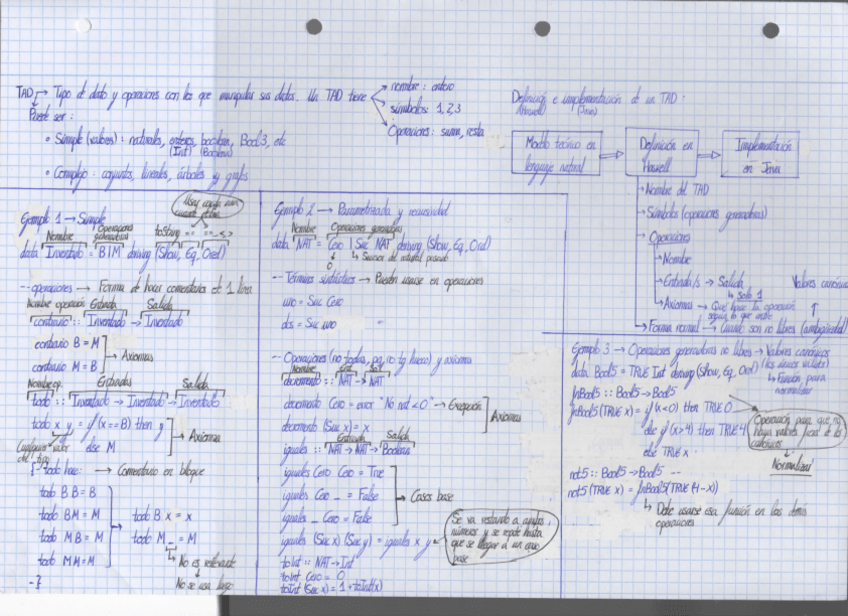 TAD → Tipo de dato y operaciones con las que manipular sus datos. Un TAD tiene
→ nombre : entero
→ símbolos: 1, 2, 3
→ Operaciones: suma, resta
Puede ser :
• Simple (valores) : naturales, enteros, boolean, Bool3, etc
(Int) (Boolean)
• Complejo : conjuntos, lineales, árboles y grafos
Definición e implementación de un TAD :
(Haskell) (Java)
Modelo teórico en
lenguaje natural
Definición en
Haskell
Implementación
en Java
→ Nombre del TAD
→ Símbolos (operaciones generadoras)
→ Operaciones
→ Nombre
→ Entrada/s → Salida
↳ solo 1
→ Axiomas → Qué hace la operación
según la que entre
→ Forma normal → Cuando son no libres (ambigüedad)
Ejemplo 1 → Simple
Nombre Operaciones generadoras toString == <>
data Inventado = B | M deriving (Show, Eq, Ord)
-- operaciones → Forma de hacer comentarios de 1 línea
Nombre operación Entrada Salida
contrario :: Inventado → Inventado
contrario B = M
contrario M = B
→ Axiomas
Nombre op. Entradas Salida
todo :: Inventado → Inventado → Inventado
todo x y = if (x == B) then y
else M
→ Axioma
Cualquier valor
del tipo
{- todo hace: → Comentario en bloque
todo B B = B
todo B M = M
todo M B = M
todo M M = M
todo B x = x
todo M _ = M
↳ No es relevante
No se usa luego
-}
Ejemplo 2 → Parametrizada y recursividad
Nombre Operaciones generadoras
data NAT = Cero | Suc NAT deriving (Show, Eq, Ord)
0 ↳ Sucesor del natural pasado
-- Términos sintácticos → Pueden usarse en operaciones
uno = Suc Cero
dos = Suc uno
-- Operaciones (no todas, pq no tg huevos) y axioma
Nombre Ent Sal
decremento :: NAT → NAT
decremento Cero = error "No nat < 0" → Excepción
decremento (Suc x) = x
Axiomas
Entrada Salida
iguales :: NAT → NAT → Boolean
iguales Cero Cero = True
iguales Cero _ = False
iguales _ Cero = False
→ Casos base
iguales (Suc x) (Suc y) = iguales x y
Se va restando a ambos
números y se repite hasta
que se llegar a un caso
base
toInt :: NAT → Int
toInt Cero = 0
toInt (Suc x) = 1 + toInt(x)
Ejemplo 3 → Operaciones generadoras no libres → Valores canónicos
(los únicos validos)
data Bool5 = TRUE Int deriving (Show, Eq, Ord)
↳ Función para
normalizar
fnBool5 :: Bool5 → Bool5
fnBool5 (TRUE x) = if (x<0) then TRUE 0
else if (x>4) then TRUE 4
else TRUE x
Operación para que no
haya valores fuera de los
canónicos
Normalizar
not5 :: Bool5 → Bool5 --
not5 (TRUE x) = fnBool5 (TRUE (4-x))
↳ Debe usarse esa función en las demás
operaciones